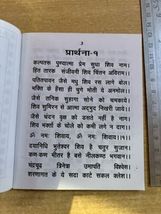 3
प्रार्थना-१
कल्पतरू पुण्यात्मा प्रेम सुधा शिव नाम।
हित तारक संजीवनी शिव चिंतन अविराम।।
पतितपावन जैसे मधु शिव रस नाम का घोले।
भक्ति के हंसा ही चुगे मोती ये अनमोल।।
जैसे तनिक सुहागा सोने को चमकाये।
शिव सुमिरन से आत्मा अद्भुत निखरी जाये।।
जैसे चंदन वृक्ष को डसते नहीं है नाग।
शिव भक्तों के चोले को कभी लगे न दाग।।
ॐ नमः शिवाय, ॐ नमः शिवाय।।
दयानिधि भुतेश्वर शिव है चतुर सुजान।
कण-कण भीतर है बसे नीलकण्ठ भगवान।।
चंद्रचूड़ त्रिनेत्र उमापति विश्वेश।
शरणागत के ये सदा काटे सकल क्लेश।।